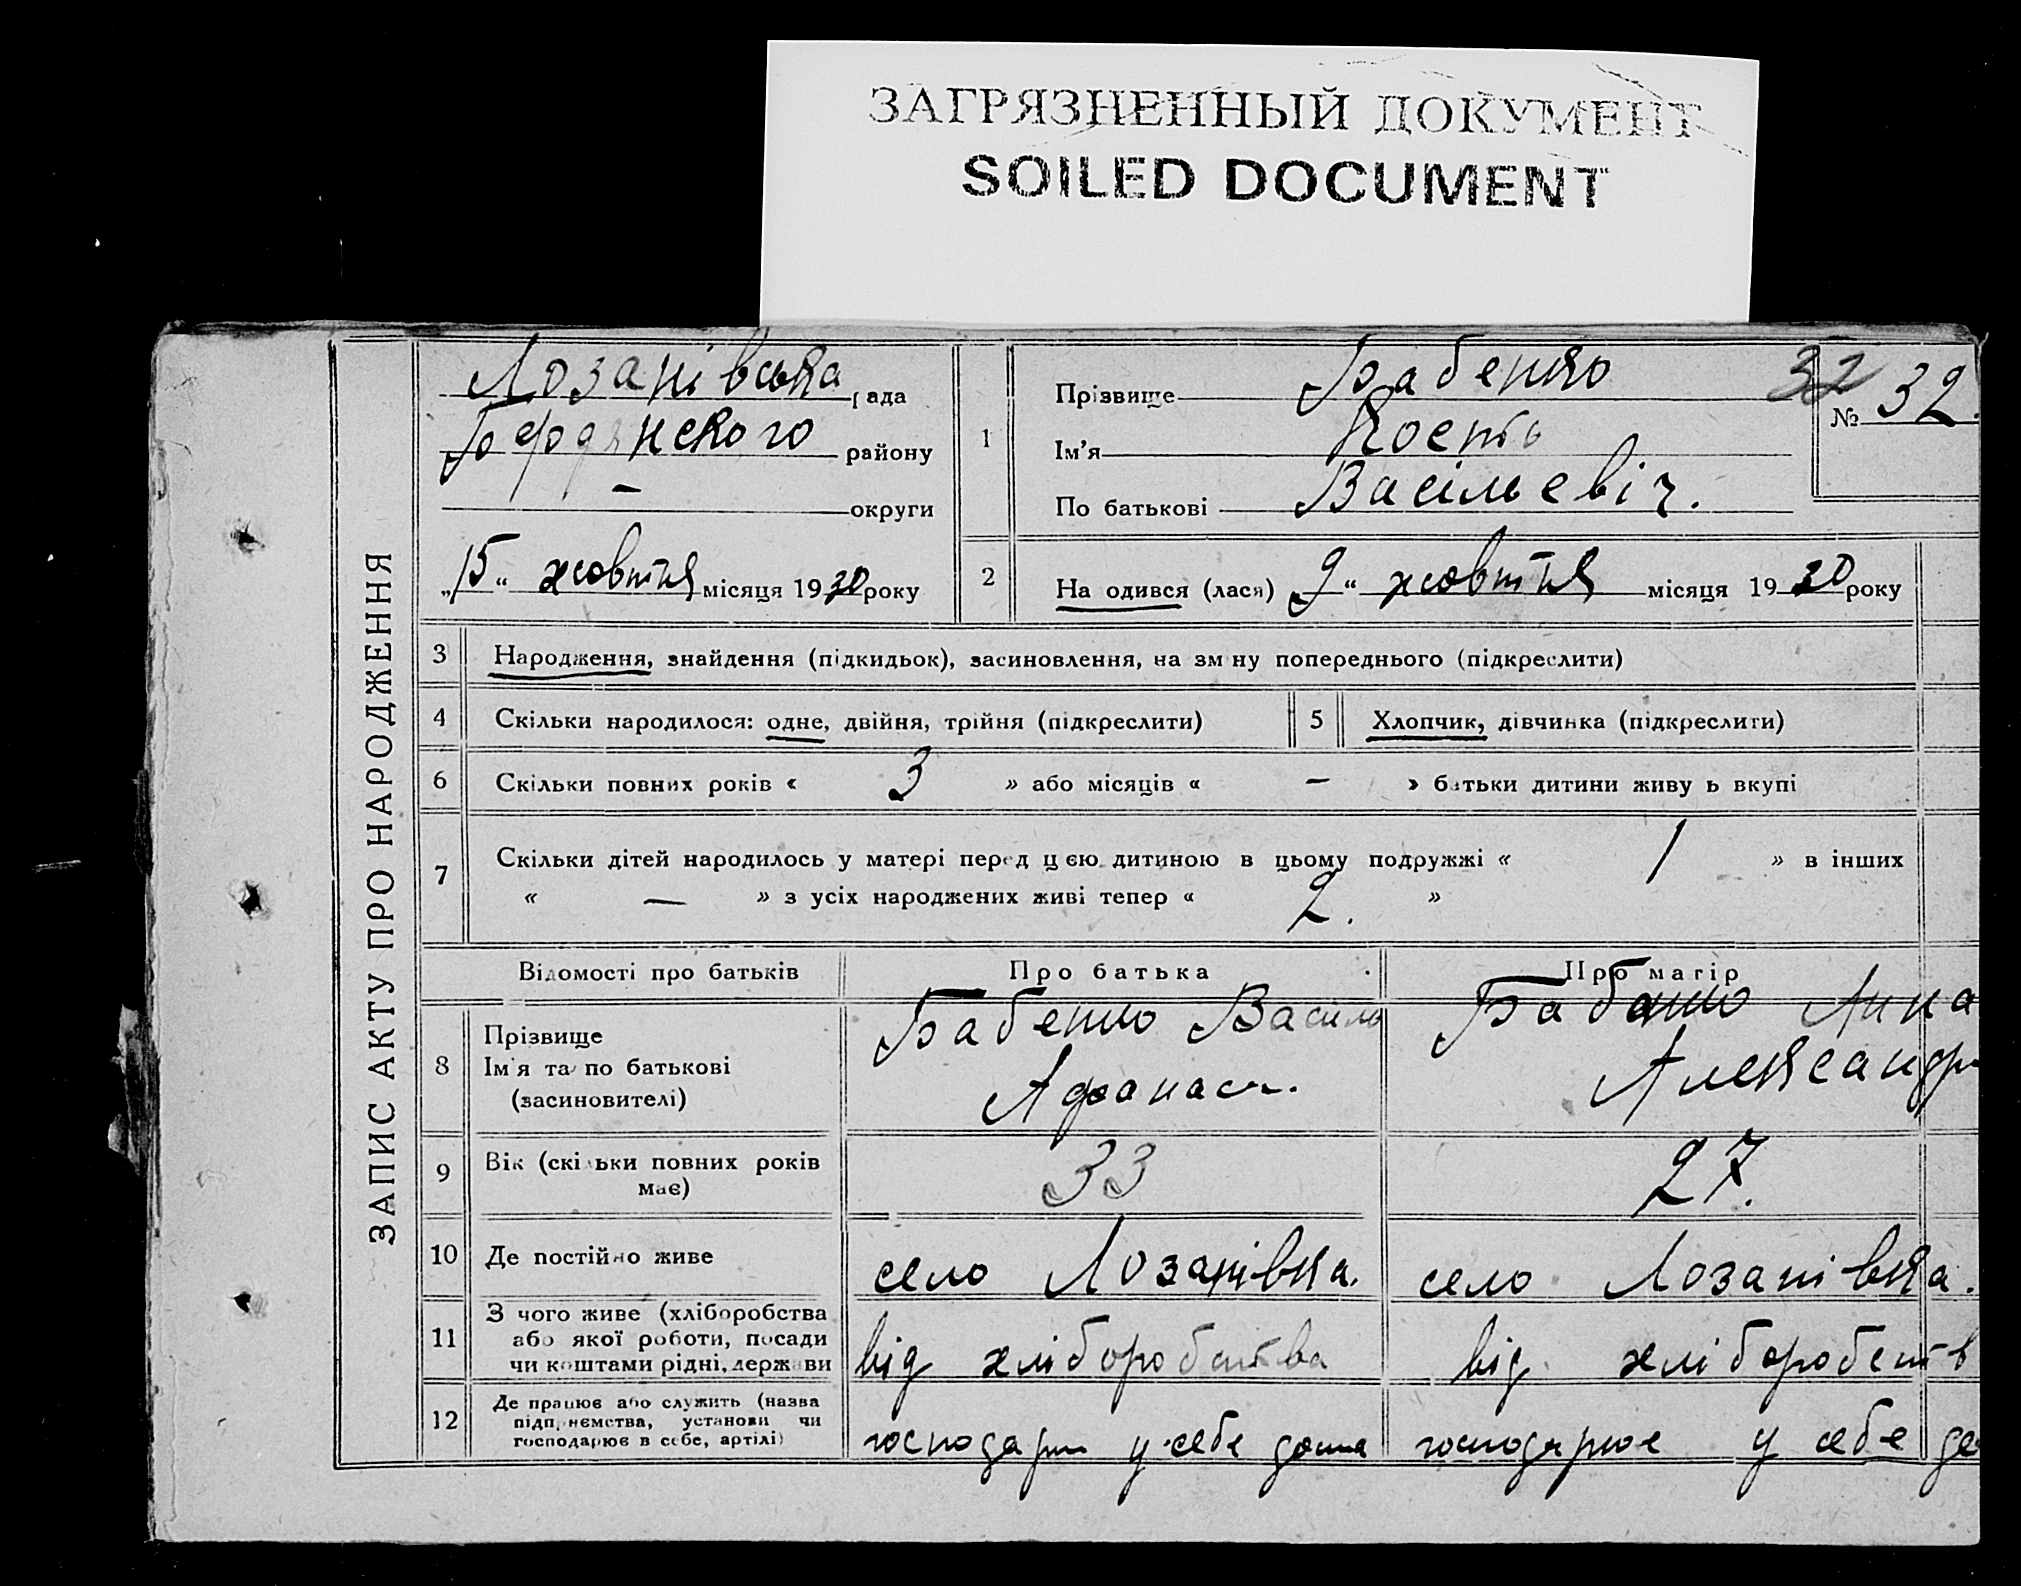 ЗАГРЯЗНЕННЫЙ ДОКУМЕНТ
SOILED DOCUMENT
ЗАПИС АКТУ ПРО НАРОДЖЕННЯ
Лозанівська рада
Бердянского району
— округи
„15“ жовтня місяця 1930 року
32
№ 32.
1
Прізвище Бабенко
Ім'я Кость
По батькові Васільевіч.
2 На одився (лася) 9 “ жовтня місяця 1930 року
3 Народження, знайдення (підкидьок), засиновлення, на зм ну попереднього (підкреслити)
4 Скільки народилося: одне, двійня, трійня (підкреслити)
5 Хлопчик, дівчинка (підкреслити)
6 Скільки повних років « 3 » або місяців « — » батьки дитини живу ь вкупі
7 Скільки дітей народилось у матері перед цією дитиною в цьому подружжі « 1 » в інших
« — » з усіх народжених живі тепер « 2. »
Відомості про батьків Про батька Про матір
8 Прізвище
Ім'я та по батькові
(засиновителі)
Бабенко Василь
Афанас.
Бабенко Анна
Александр
9 Вік (скільки повних років
має)
33 27.
10 Де постійно живе село Лозанівка. село Лозанівка.
11 З чого живе (хліборобства
або якої роботи, посади
чи коштами рідні, держави
від хліборобства від хліборобств
12 Де працює або служить (назва
підприємства, установи чи
господарює в себе, артілі)
господарює у себе дома господарює у себе до